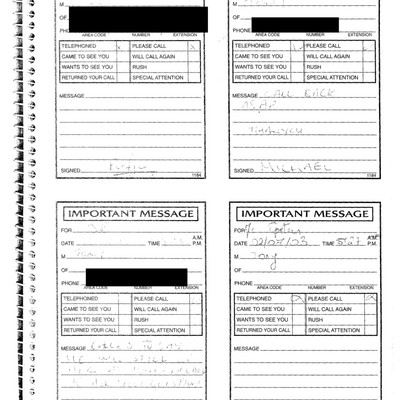 M
OF
PHONE
AREA CODE NUMBER EXTENSION
TELEPHONED x PLEASE CALL x
CAME TO SEE YOU WILL CALL AGAIN
WANTS TO SEE YOU RUSH
RETURNED YOUR CALL SPECIAL ATTENTION
MESSAGE
SIGNED
1184
M
OF
PHONE
AREA CODE NUMBER EXTENSION
TELEPHONED PLEASE CALL
CAME TO SEE YOU WILL CALL AGAIN
WANTS TO SEE YOU RUSH
RETURNED YOUR CALL SPECIAL ATTENTION
MESSAGE CALL BACK
ASAP
THANK YOU
SIGNED MICHAEL
1184
IMPORTANT MESSAGE
FOR
DATE TIME A.M. P.M.
M
OF
PHONE
AREA CODE NUMBER EXTENSION
TELEPHONED PLEASE CALL
CAME TO SEE YOU WILL CALL AGAIN
WANTS TO SEE YOU RUSH
RETURNED YOUR CALL SPECIAL ATTENTION
MESSAGE CALLED TO SAY
HE WILL
IMPORTANT MESSAGE
FOR
DATE 02/07/03 TIME A.M. P.M.
M Tony
OF
PHONE
AREA CODE NUMBER EXTENSION
TELEPHONED PLEASE CALL
CAME TO SEE YOU WILL CALL AGAIN
WANTS TO SEE YOU RUSH
RETURNED YOUR CALL SPECIAL ATTENTION
MESSAGE